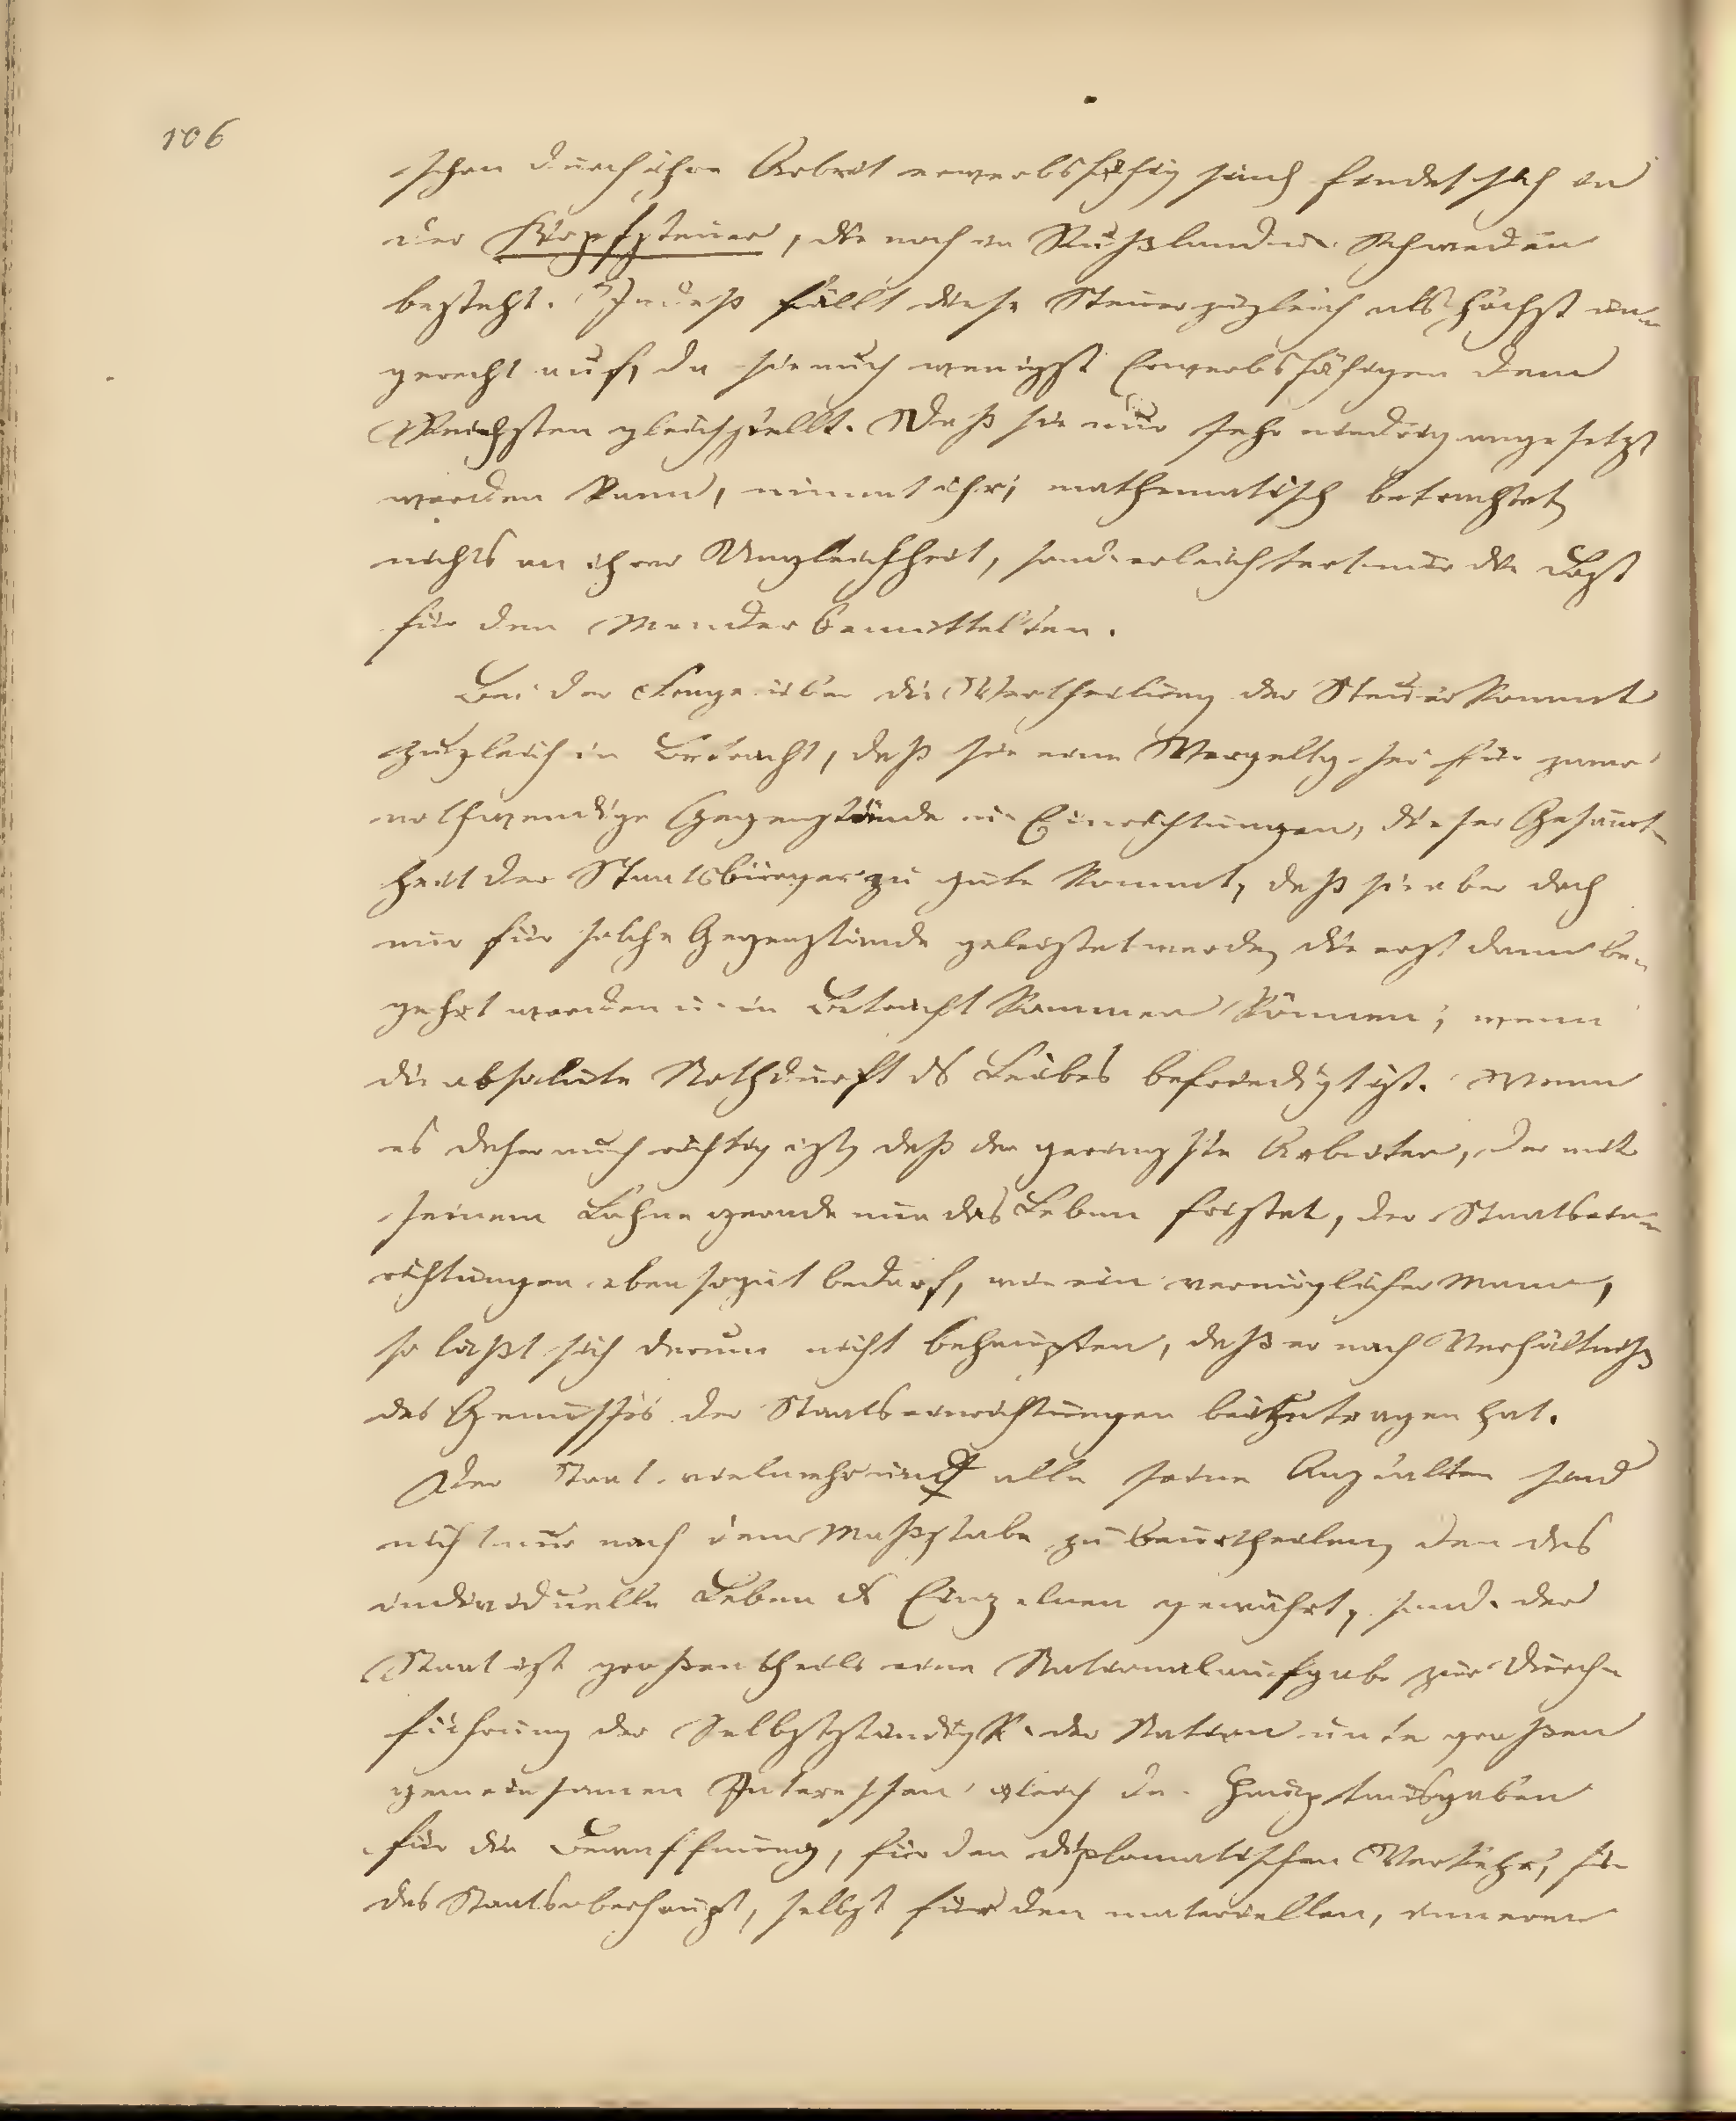 106
schon durch ihre Arbeit erwerbsfähig sind, findet sich in
der Kopfsteuer, die noch in Rußland u. Schweden
besteht. Indeß fällt diese Steuer zugleich als höchst un-
gerecht auf, da sie auch wenigst Erwerbsfähigen dem
Reichsten gleichstellt. Daß sie nur sehr niedrig angesetzt
werden kann, nimmt ihr, mathematisch betrachtet,
nichts an ihrer Ungleichheit, sond. erleichtert nur die Last
für den Minderbemittelten.
Bei der Frage über die Vertheilung der Steuer kommt
zugleich in Betracht, daß sie eine Vergeltg. sei für zwar
nothwendige Gegenstände u. Einrichtungen, die der Gesammt-
heit der Staatsbürger zu gute kommt, daß sie aber doch
nur für solche Gegenstände geleistet werde, die erst dann be-
gehrt werden u. in Betracht kommen können, wenn
die absolute Nothdurft ds Leibes befriedigt ist. Wenn
es daher auch richtig ist, daß der geringste Arbeiter, der mit
seinem Lohne gerade nur das Leben fristet, der Staatsein-
richtungen eben sogut bedarf, wie ein vermöglicher Mann,
so läßt sich darum nicht behaupten, daß er nach Verhältniß
des Genusses der Staatseinrichtungen beizutragen hat.
Der Staat vielmehr und alle seine Anstalten sind
nicht nur nach dem Maßstabe zu beurtheilen, den das
individuelle Leben ds Einzelnen gewährt, sond. der
Staat ist großentheils eine Nationalaufgabe zur Durch-
führung der Selbstständigk. der Nation unter großen
gemeinsamen Interessen, gleich den Hauptausgaben
für die Bewaffnung, für den diplomatischen Verkehr, für
das Staatsoberhaupt, selbst für den materiellen, inneren